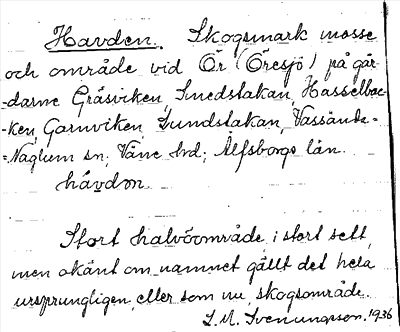 Havden. Skogsmark mosse
och område vid Ör (Öresjö) på går-
-darne Gräsviken, Smedstakan, Hasselbac-
-ken, Garnviken, Sundstakan, Vassända-
=Naglum sn; Väne hd; Älfsborgs län.
hávdɷn
Stort halvöområde, i stort sett,
men okänt om namnet gällt det hela
ursprungligen, eller som nu, skogsområde.
S. M. Svenungson. 1936